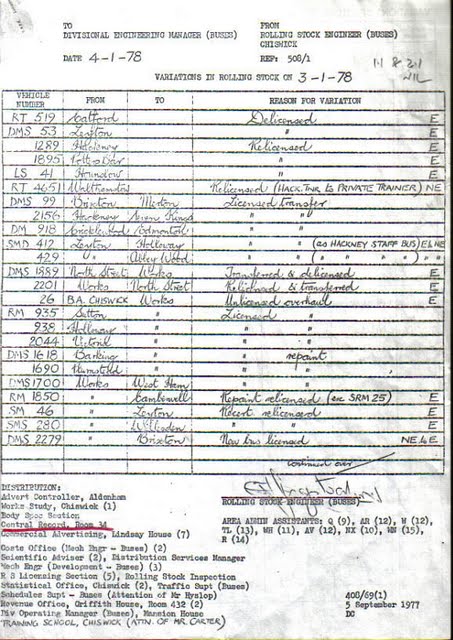 TO
DIVISIONAL ENGINEERING MANAGER (BUSES)
FROM
ROLLING STOCK ENGINEER (BUSES)
CHISWICK
DATE 4-1-78
REF: 508/1
11 & 21
NIL
VARIATIONS IN ROLLING STOCK ON 3-1-78
VEHICLE NUMBER FROM TO REASON FOR VARIATION
RT 519 Catford Delicensed E
DMS 53 Leyton " E
1289 Hackney Relicensed E
1895 Potters Bar " E
LS 41 Hounslow " E
RT 4651 Walthamstow Relicensed (HACK. TNR to PRIVATE TRAINER) NE
DMS 99 Brixton Merton Licensed transfer E
2156 Hackney Seven Kings " " E
DM 918 Cricklewood Edmonton " " E
SMD 412 Leyton Holloway " " (as HACKNEY STAFF BUS) E & NE
429 " Abbey Wood " " ( " " " ) " "
DMS 1889 North Street Works Transferred & delicensed E
2201 Works North Street Relicensed & transferred E
26 B.A. CHISWICK Works Unlicensed overhaul E
RM 935 Sutton " Licensed "
938 Holloway " " "
2044 Victoria " " "
DMS 1618 Barking " " repaint
1690 Plumstead " " "
DMS 1700 Works West Ham " "
RM 1850 " Camberwell Repaint relicensed (exc SRM 25) E
SM 46 " Leyton Recert relicensed E
SMS 280 " Willesden " " E
DMS 2279 " Brixton New bus licensed NE & E
continued over
ROLLING STOCK ENGINEER (BUSES)
DISTRIBUTION:
Advert Controller, Aldenham
Works Study, Chiswick (1)
Body Spec Section
Central Record, Room 34
Commercial Advertizing, Lindsay House (7)
Costs Office (Mech Engr - Buses) (2)
Scientific Adviser (2), Distribution Services Manager
Mech Engr (Development - Buses) (3)
R S Licensing Section (5), Rolling Stock Inspection
Statistical Office, Chiswick (2), Traffic Supt (Buses)
Schedules Supt - Buses (Attention of Mr Hyslop)
Revenue Office, Griffith House, Room 432 (2)
Div Operating Manager (Buses), Mansion House
TRAINING SCHOOL, CHISWICK (ATTN. OF MR. CARTER)
AREA ADMIN ASSISTANTS: Q (9), AR (12), W (12),
TL (13), WH (11), AV (12), NX (10), MN (15),
R (14)
408/69(1)
5 September 1977
DG